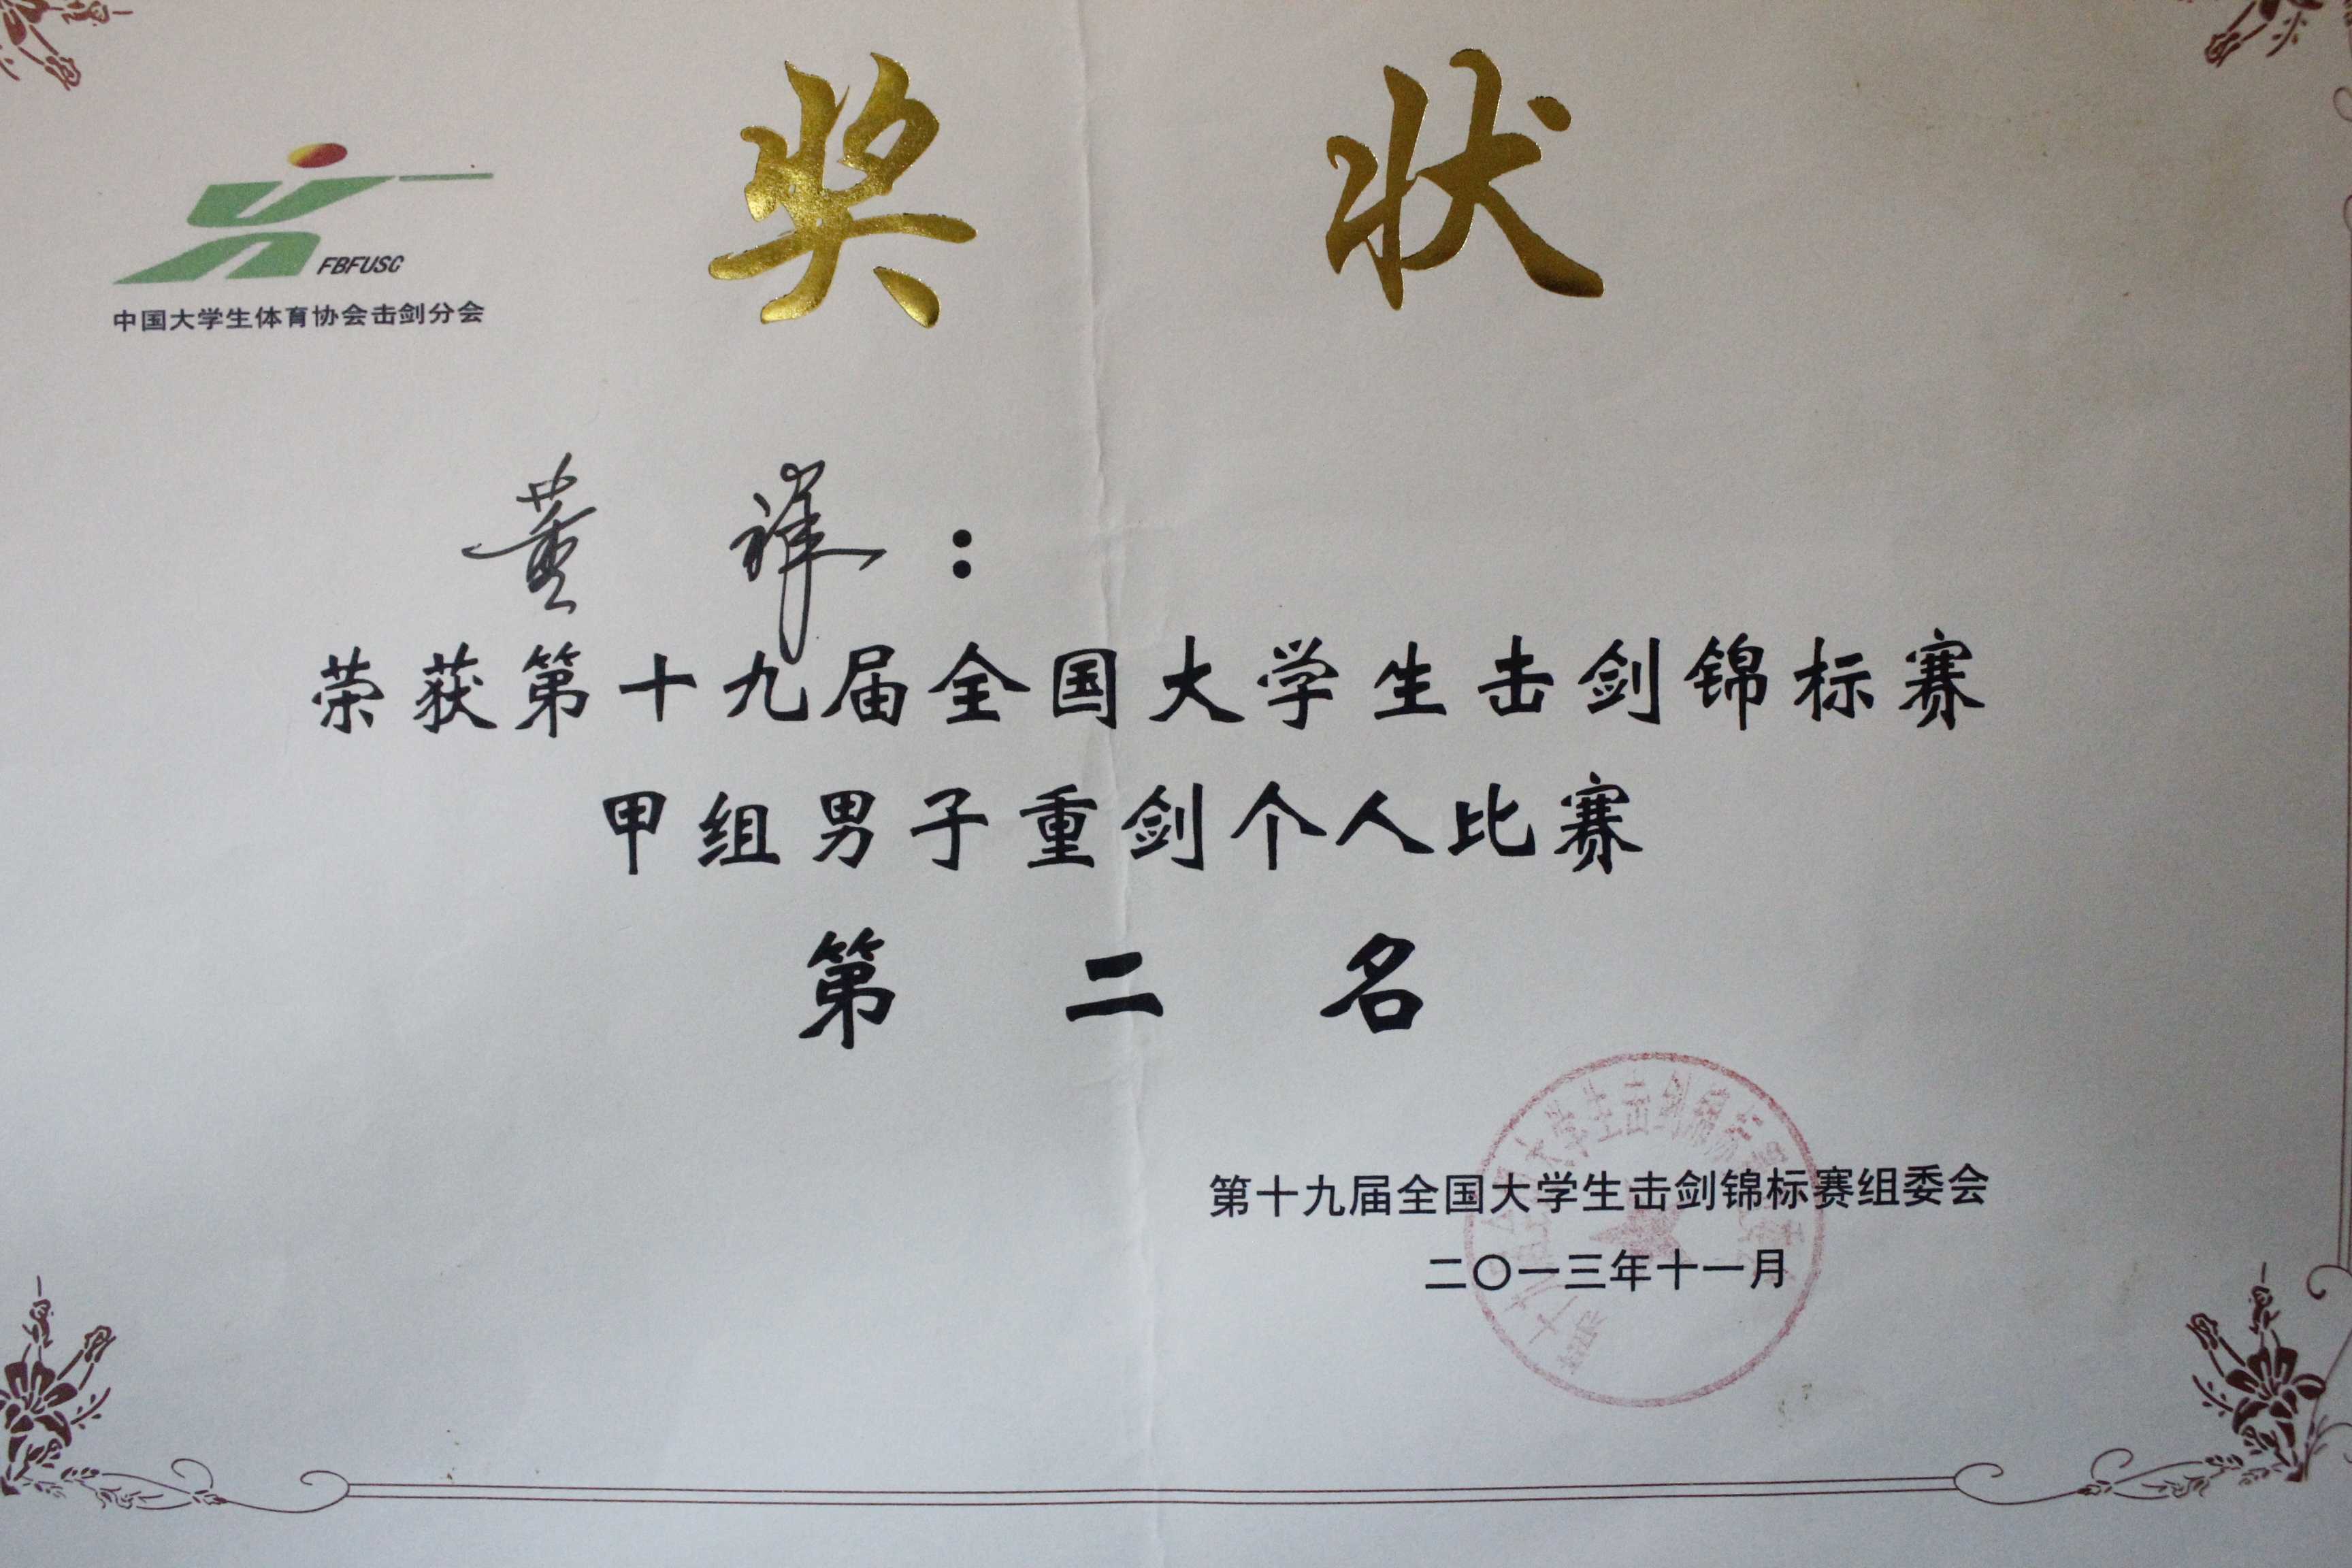 奖状
FBFUSC
中国大学生体育协会击剑分会
董祥：
荣获第十九届全国大学生击剑锦标赛
甲组男子重剑个人比赛
第二名
第十九届全国大学生击剑锦标赛组委会
二〇一三年十一月